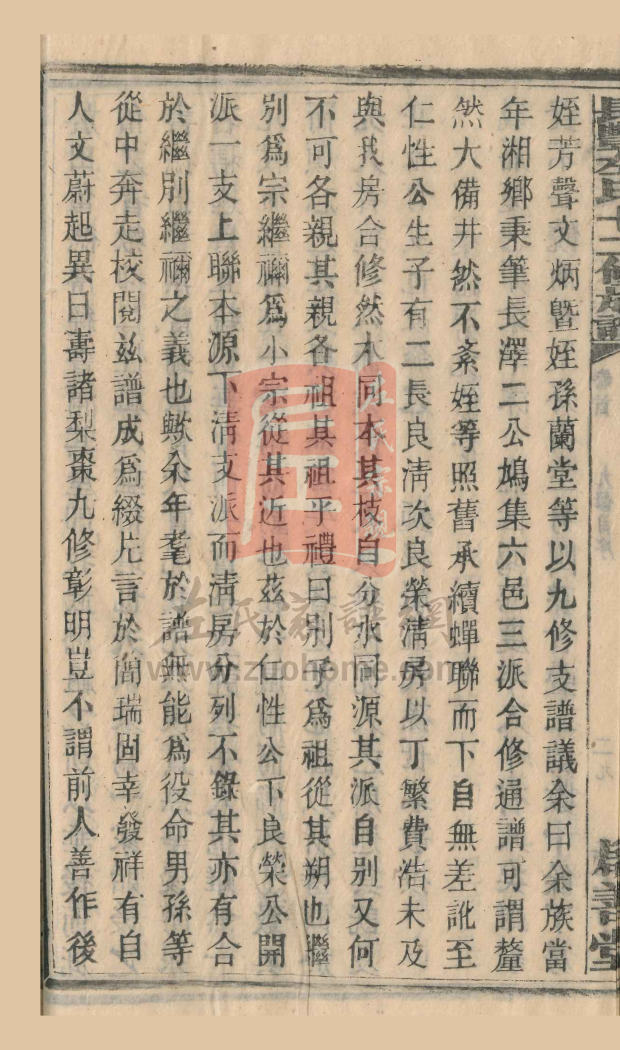 姪芳聲文炳暨姪孫蘭堂等以九修支譜議余曰余族當
年湘鄉秉筆長澤二公鳩集六邑三派合修通譜可謂釐
然大備井然不紊姪等照舊承續蟬聯而下自無差訛至
仁性公生子有二長良淸次良榮淸房以丁繁費浩未及
與我房合修然木同本其枝自分水同源其派自別又何
不可各親其親各祖其祖乎禮曰別子爲祖從其朔也繼
別爲宗繼禰爲小宗從其近也茲於仁性公下良榮公開
派一支上聯本源下淸支派而淸房分列不錄其亦有合
於繼別繼禰之義也歟余年耄於譜無能爲役命男孫等
從中奔走校閱茲譜成爲綴片言於簡瑞固幸發祥有自
人文蔚起異日壽諸梨棗九修彰明豈不謂前人善作後
左氏家譜網
www.zuohome.com